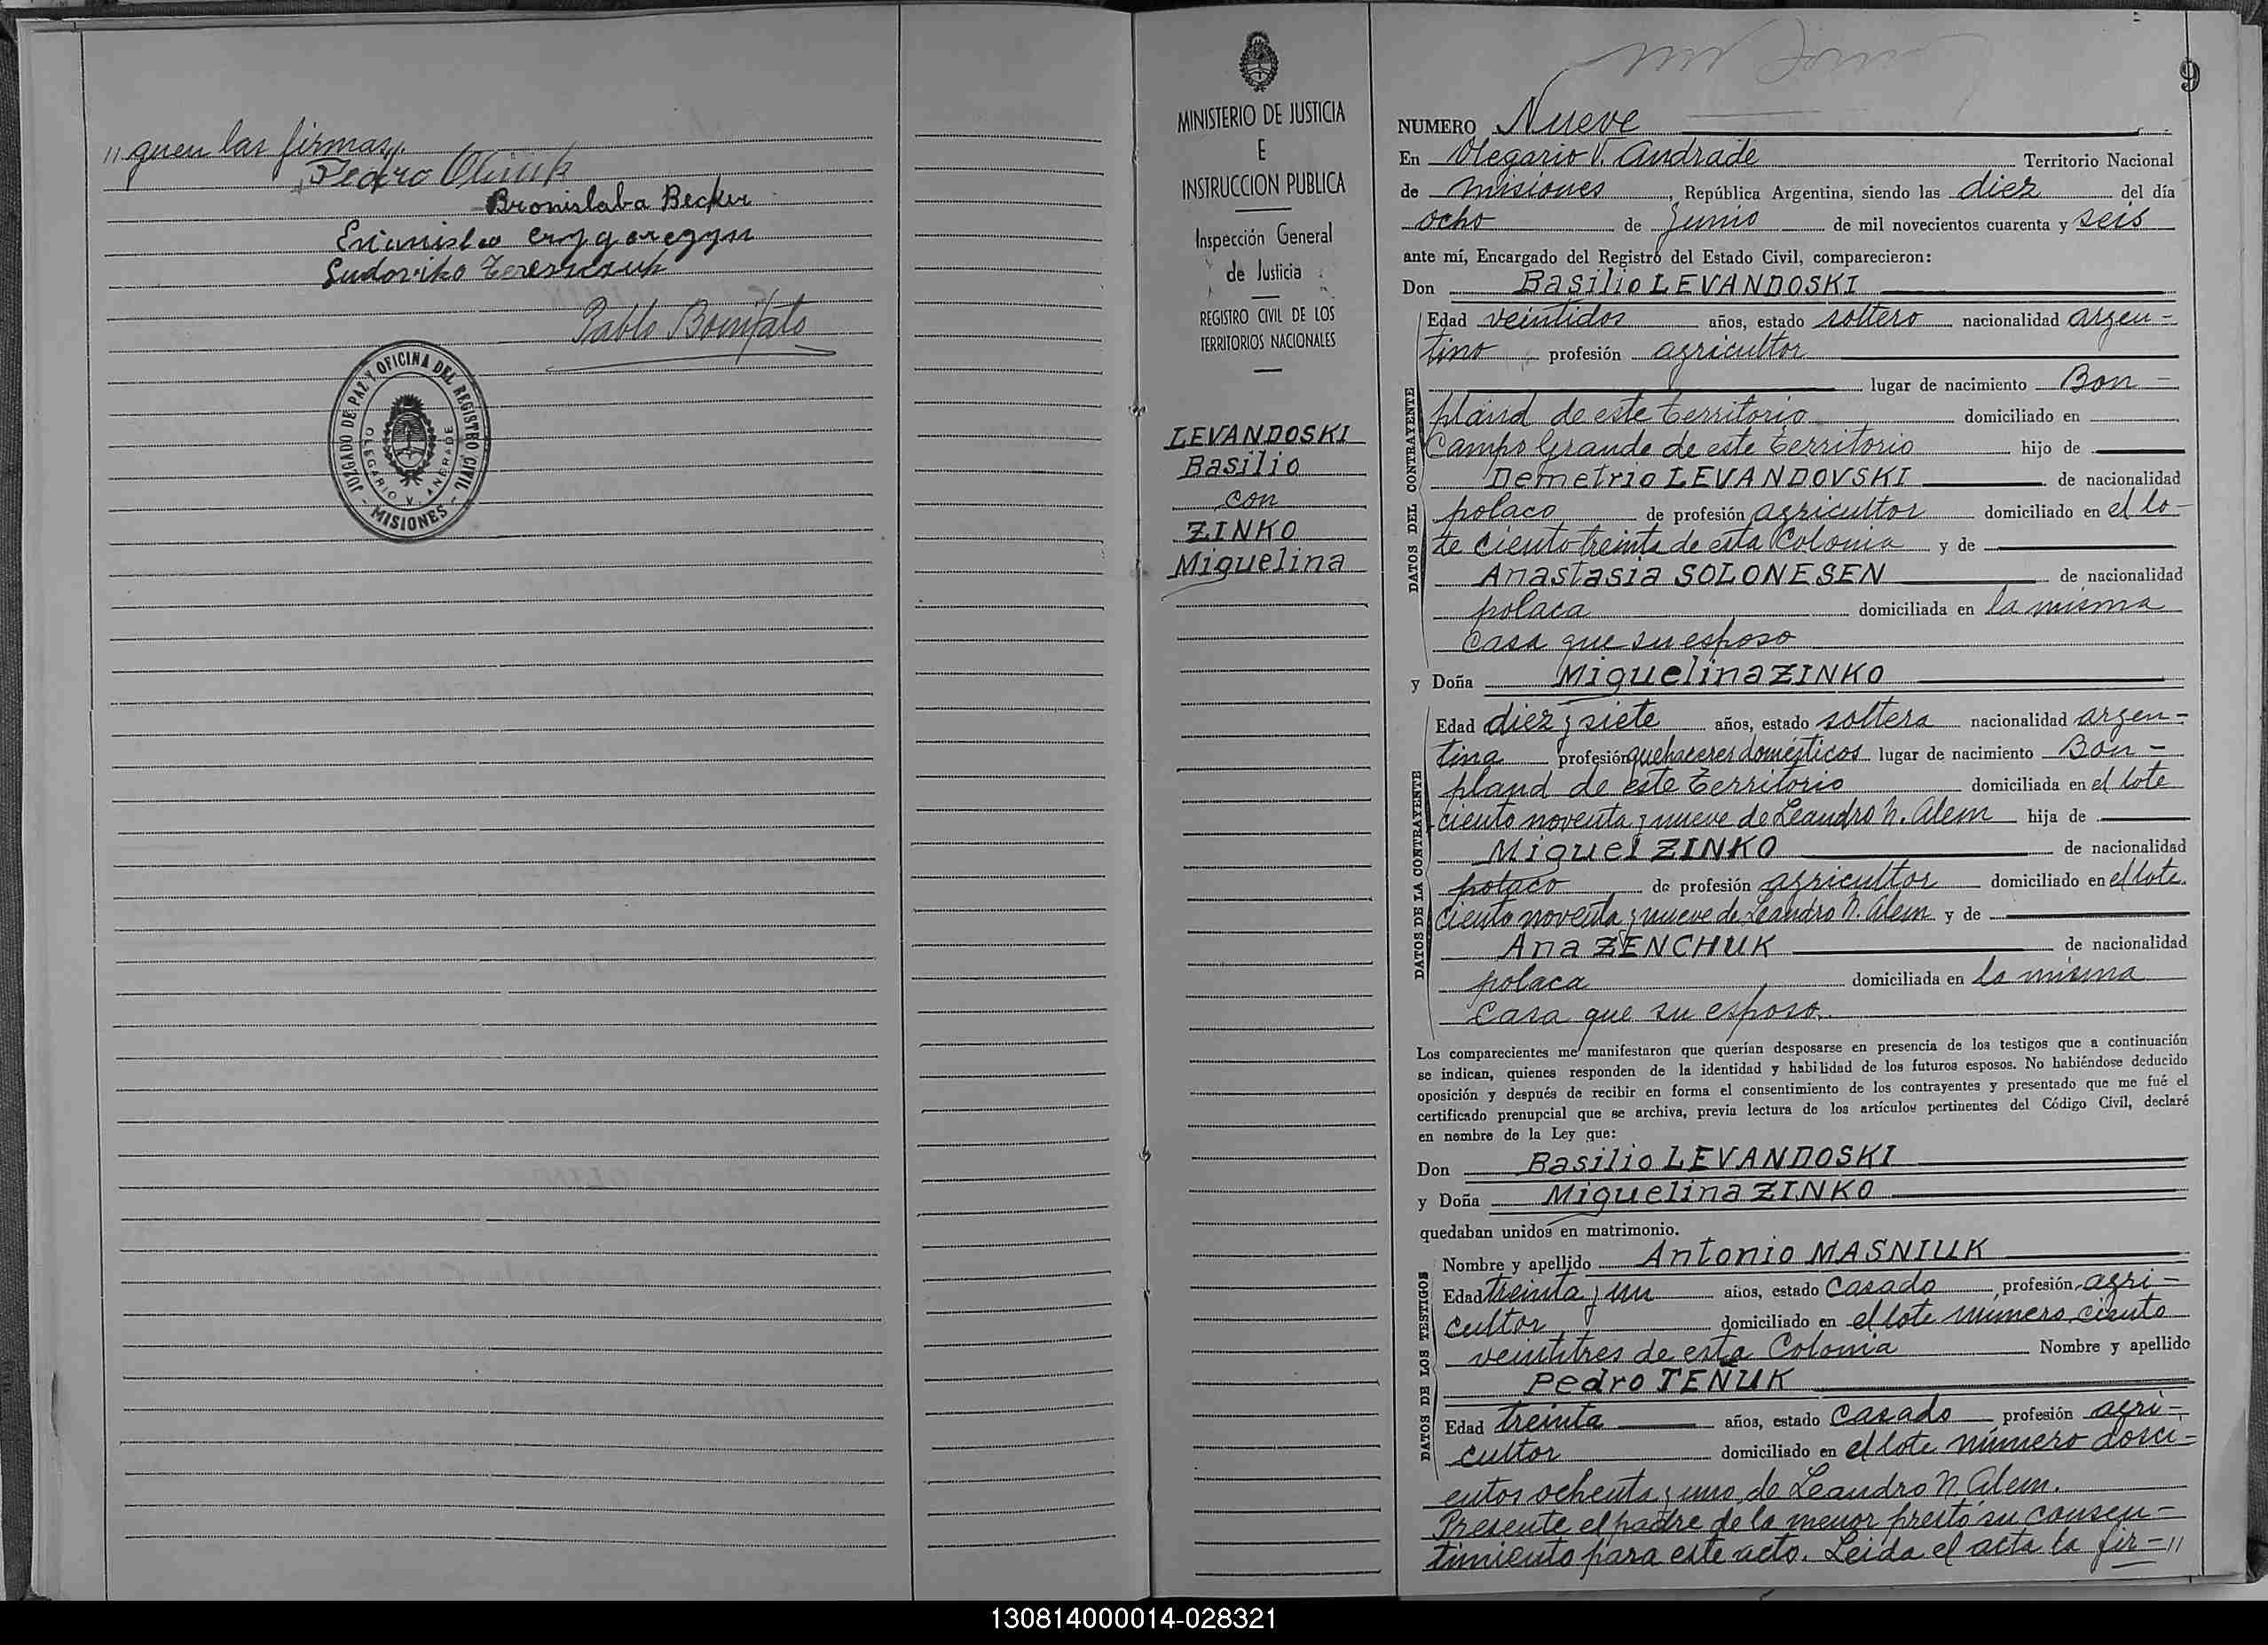 "guen las firmas".
Pedro
Bronislaba Becker
Pablo Bonifato
JUZGADO DE PAZ Y OFICINA DEL REGISTRO CIVIL
OLEGARIO V. ANDRADE
- MISIONES -
MINISTERIO DE JUSTICIA
E
INSTRUCCION PUBLICA
Inspección General
de Justicia
REGISTRO CIVIL DE LOS
TERRITORIOS NACIONALES
LEVANDOSKI
Basilio
con
ZINKO
Miguelina
9
NUMERO Nueve
En Olegario V. Andrade Territorio Nacional
de Misiones, República Argentina, siendo las diez del día
ocho de Junio de mil novecientos cuarenta y seis
ante mí, Encargado del Registro del Estado Civil, comparecieron:
Don Basilio LEVANDOSKI
DATOS DEL CONTRAYENTE
Edad veintidos años, estado soltero nacionalidad argen-
tino profesión agricultor
lugar de nacimiento Bon-
pland de este territorio domiciliado en
Campo Grande de este territorio hijo de
Demetrio LEVANDOVSKI de nacionalidad
polaco de profesión agricultor domiciliado en el lo-
te ciento treinta de esta Colonia y de
Anastasia SOLONESEN de nacionalidad
polaca domiciliada en la misma
casa que su esposo
y Doña Miguelina ZINKO
DATOS DE LA CONTRAYENTE
Edad diez y siete años, estado soltera nacionalidad argen-
tina profesión quehaceres domésticos lugar de nacimiento Bon-
pland de este territorio domiciliada en el lote
ciento noventa y nueve de Leandro N. Alem hija de
Miguel ZINKO de nacionalidad
polaco de profesión agricultor domiciliado en el lote
ciento noventa y nueve de Leandro N. Alem y de
Ana ZENCHUK de nacionalidad
polaca domiciliada en la misma
casa que su esposo.
Los comparecientes me manifestaron que querían desposarse en presencia de los testigos que a continuación
se indican, quienes responden de la identidad y habilidad de los futuros esposos. No habiéndose deducido
oposición y después de recibir en forma el consentimiento de los contrayentes y presentado que me fué el
certificado prenupcial que se archiva, previa lectura de los artículos pertinentes del Código Civil, declaré
en nombre de la Ley que:
Don Basilio LEVANDOSKI
y Doña Miguelina ZINKO
quedaban unidos en matrimonio.
DATOS DE LOS TESTIGOS
Nombre y apellido Antonio MASNIUK
Edad treinta y un años, estado casado profesión agri-
cultor domiciliado en el lote número ciento
veintitres de esta Colonia Nombre y apellido
Pedro TEÑUK
Edad treinta años, estado casado profesión agri-
cultor domiciliado en el lote número dosci-
entos ochenta y uno de Leandro N. Alem.
Presente el padre de la menor prestó su consen-
timiento para este acto. Leida el acta la fir-"
130814000014-028321